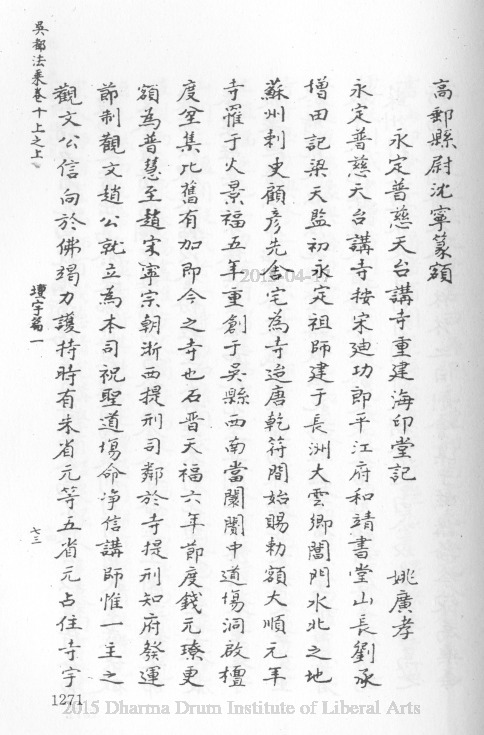 高郵縣尉沈寧篆額
永定普慈天台講寺重建海印堂記 姚廣孝
永定普慈天台講寺按宋廸功郎平江府和靖書堂山長劉承
增田記梁天監初永定祖師建于長洲大雲鄉閶門水北之地
蘇州刺史顧彥先舍宅為寺迨唐乾符間始賜勅額大順元年
寺罹于火景福五年重創于吳縣西南當闤闠中道塲洞啟檀
度坌集比舊有加即今之寺也石晉天福六年節度錢元璙更
額為普慧至趙宋寧宗朝浙西提刑司鄰於寺提刑知府發運
節制觀文趙公就立為本司祝聖道塲命淨信講師惟一主之
觀文公信向於佛獨力護持時有朱省元等五省元占住寺宇
吳都法乘卷十上之上
壇宇篇一
七三
1271
2015-04-1
2015 Dharma Drum Institute of Liberal Arts